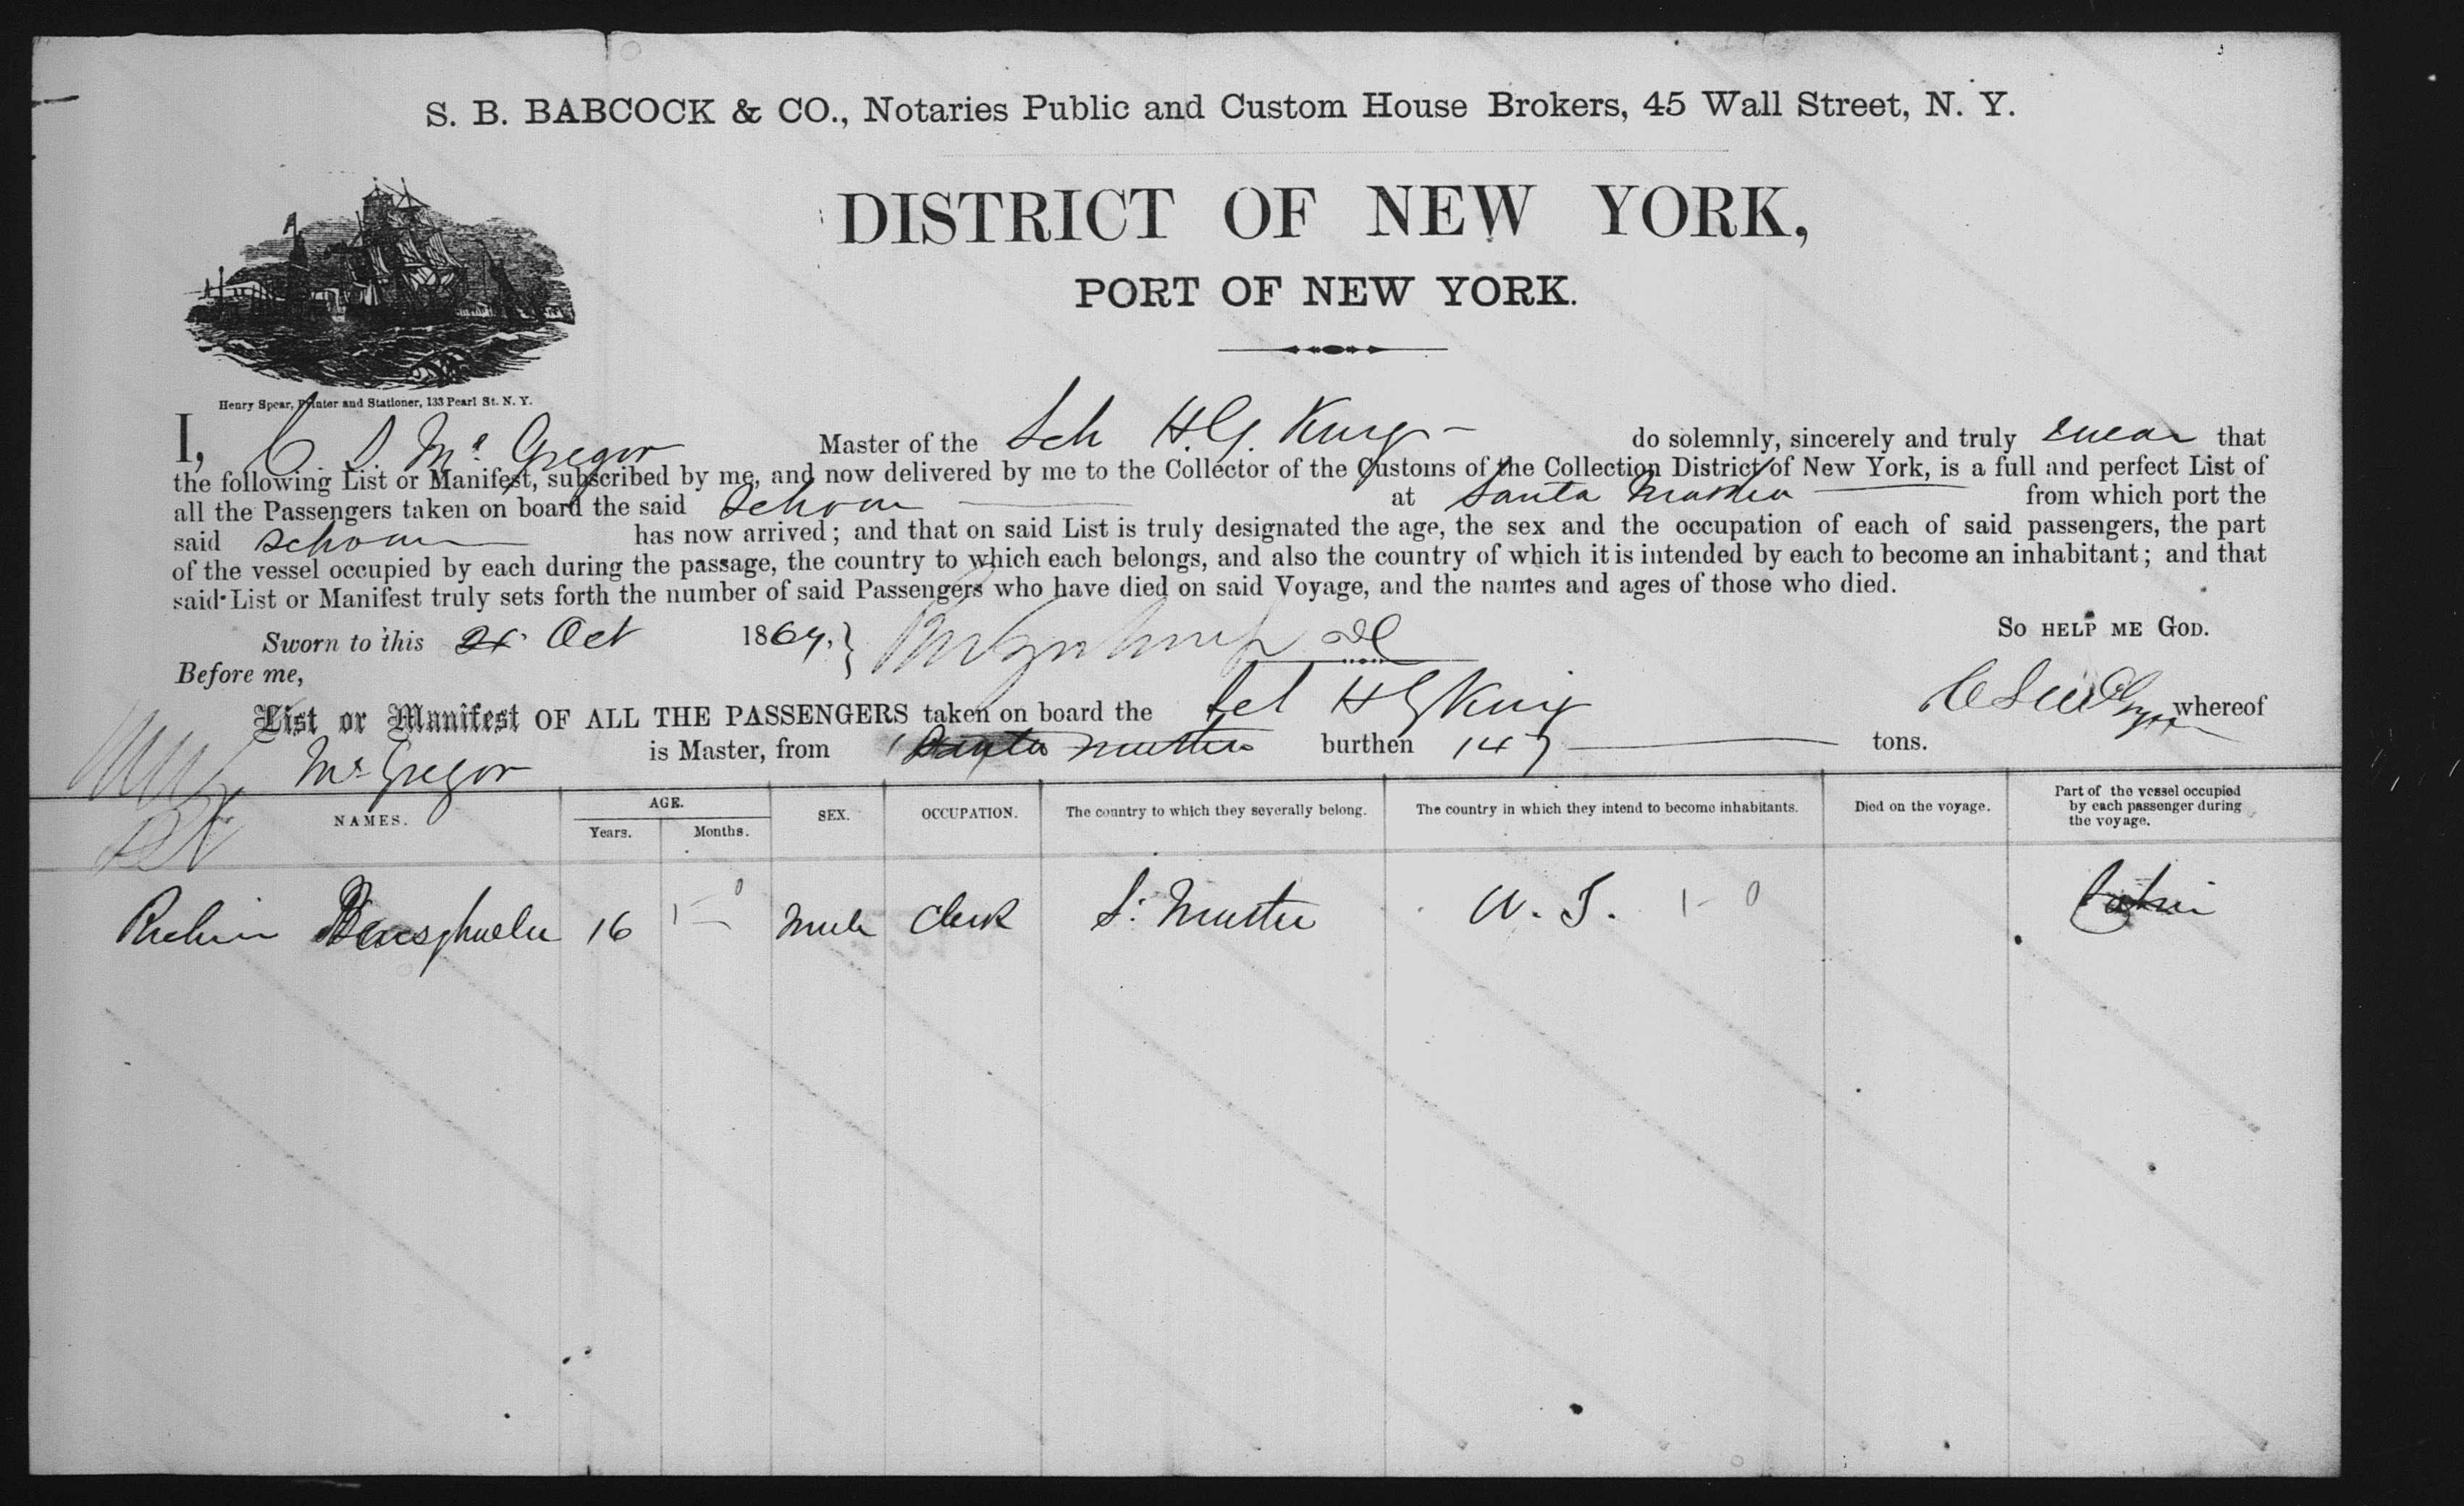 S. B. BABCOCK & CO., Notaries Public and Custom House Brokers, 45 Wall Street, N. Y.
DISTRICT OF NEW YORK,
PORT OF NEW YORK.
Henry Spear, Printer and Stationer, 133 Pearl St. N. Y.
I, C S McGregor Master of the Sch H.G. King do solemnly, sincerely and truly swear that
the following List or Manifest, subscribed by me, and now delivered by me to the Collector of the Customs of the Collection District of New York, is a full and perfect List of
all the Passengers taken on board the said Schoon at Santa Martha from which port the
said schoon has now arrived; and that on said List is truly designated the age, the sex and the occupation of each of said passengers, the part
of the vessel occupied by each during the passage, the country to which each belongs, and also the country of which it is intended by each to become an inhabitant; and that
said List or Manifest truly sets forth the number of said Passengers who have died on said Voyage, and the names and ages of those who died.
Sworn to this Oct 1867. SO HELP ME GOD.
Before me,
List or Manifest OF ALL THE PASSENGERS taken on board the H G King whereof
McGregor is Master, from Santa Martha burthen 147 tons.
NAMES. AGE. Years. Months. SEX. OCCUPATION. The country to which they severally belong. The country in which they intend to become inhabitants. Died on the voyage. Part of the vessel occupied by each passenger during the voyage.
16 Male Clerk S. Martha Cabin